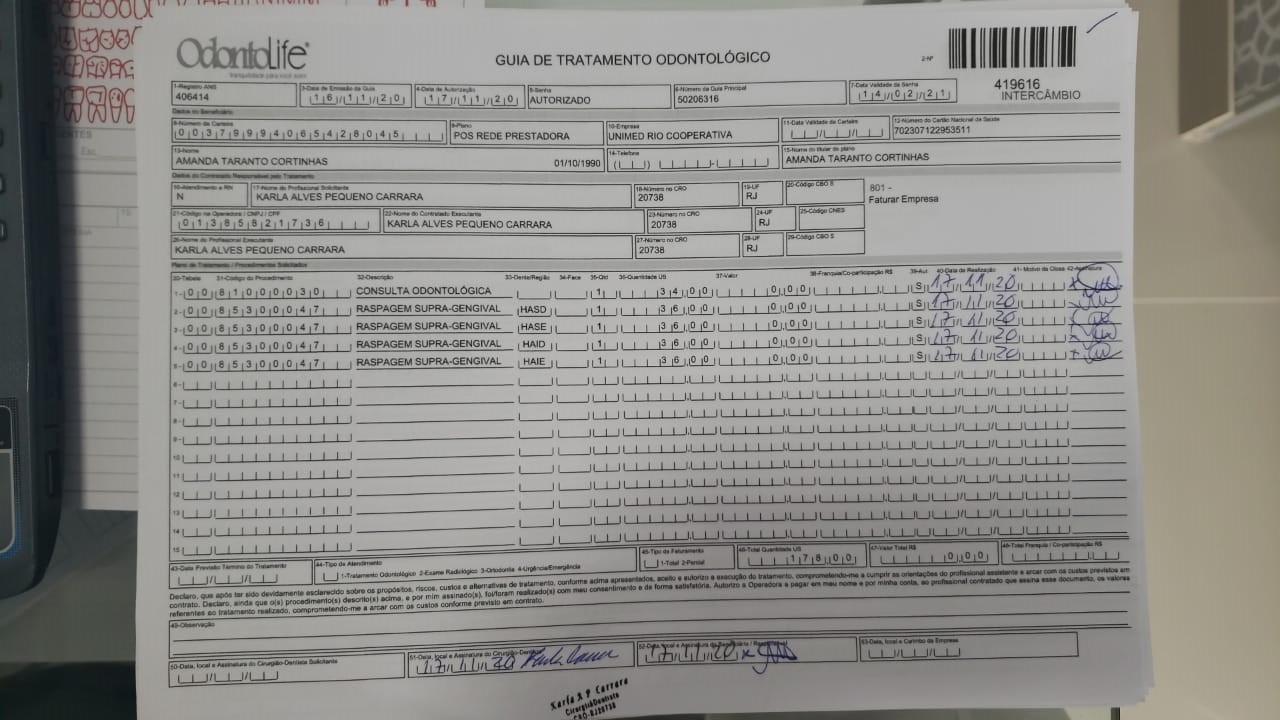 OdontoLife®
tranquilidade para você sorrir
GUIA DE TRATAMENTO ODONTOLÓGICO
2-Nº
419616
INTERCÂMBIO
1-Registro ANS 3-Data de Emissão da Guia 4-Data de Autorização 5-Senha 6-Número da Guia Principal 7-Data Validade da Senha
406414 16/11/20 17/11/20 AUTORIZADO 50206316 14/02/21
Dados do Beneficiário
8-Número da Carteira 9-Plano 10-Empresa 11-Data Validade da Carteira 12-Número do Cartão Nacional de Saúde
00379994065428045 POS REDE PRESTADORA UNIMED RIO COOPERATIVA 702307122953511
13-Nome 14-Telefone 15-Nome do titular do plano
AMANDA TARANTO CORTINHAS 01/10/1990 AMANDA TARANTO CORTINHAS
Dados do Contratado Responsável pelo Tratamento
16-Atendimento a RN 17-Nome do Profissional Solicitante 18-Número no CRO 19-UF 20-Código CBO S 801 -
N KARLA ALVES PEQUENO CARRARA 20738 RJ Faturar Empresa
21-Código na Operadora / CNPJ / CPF 22-Nome do Contratado Executante 23-Número no CRO 24-UF 25-Código CNES
01385821736 KARLA ALVES PEQUENO CARRARA 20738 RJ
26-Nome do Profissional Executante 27-Número no CRO 28-UF 29-Código CBO S
KARLA ALVES PEQUENO CARRARA 20738 RJ
Plano de Tratamento / Procedimentos Solicitados
30-Tabela 31-Código do Procedimento 32-Descrição 33-Dente/Região 34-Face 35-Qtd 36-Quantidade US 37-Valor 38-Franquia/Co-participação R$ 39-Aut 40-Data de Realização 41- Motivo da Glosa 42-Assinatura
1- 00 81000030 CONSULTA ODONTOLÓGICA 1 34 00 0 00 S 17 11 20
2- 00 85300047 RASPAGEM SUPRA-GENGIVAL HASD 1 36 00 0 00 S 17 11 20
3- 00 85300047 RASPAGEM SUPRA-GENGIVAL HASE 1 36 00 0 00 S 17 11 20
4- 00 85300047 RASPAGEM SUPRA-GENGIVAL HAID 1 36 00 0 00 S 17 11 20
5- 00 85300047 RASPAGEM SUPRA-GENGIVAL HAIE 1 36 00 0 00 S 17 11 20
6-
7-
8-
9-
10
11
12
13
14
15
43-Data Previsão Término do Tratamento 44-Tipo de Atendimento 45-Tipo de Faturamento 46-Total Quantidade US 47-Valor Total R$ 48-Total Franquia / Co-participação R$
1-Tratamento Odontológico 2-Exame Radiológico 3-Ortodontia 4-Urgência/Emergência 1-Total 2-Parcial 178 00 0 00
Declaro, que após ter sido devidamente esclarecido sobre os propósitos, riscos, custos e alternativas de tratamento, conforme acima apresentados, aceito e autorizo a execução do tratamento, comprometendo-me a cumprir as orientações do profissional assistente e arcar com os custos previstos em
contrato. Declaro, ainda que o(s) procedimento(s) descrito(s) acima, e por mim assinado(s), foi/foram realizado(s) com meu consentimento e de forma satisfatória. Autorizo a Operadora a pagar em meu nome e por minha conta, ao profissional contratado que assina esse documento, os valores
referentes ao tratamento realizado, comprometendo-me a arcar com os custos conforme previsto em contrato.
49-Observação
50-Data, local e Assinatura do Cirurgião-Dentista Solicitante 51-Data, local e Assinatura do Cirurgião-Dentista 52-Data, local e Assinatura do Beneficiário / Responsável 53-Data, local e Carimbo da Empresa
17 11 20 Karla Carrara 17 11 20 x
Karla A P Carrara
Cirurgiã Dentista
CRO-RJ20738